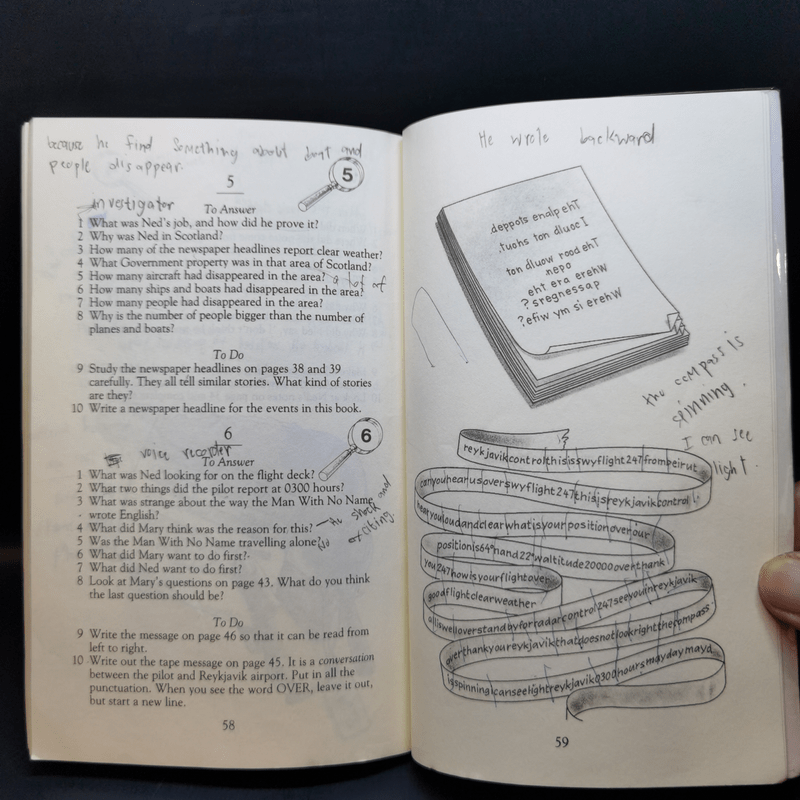 because he find something about boat and
people disappear.
5
5
investigator
To Answer
1 What was Ned's job, and how did he prove it?
2 Why was Ned in Scotland?
3 How many of the newspaper headlines report clear weather?
4 What Government property was in that area of Scotland?
5 How many aircraft had disappeared in the area? a lot of
6 How many ships and boats had disappeared in the area?
7 How many people had disappeared in the area?
8 Why is the number of people bigger than the number of
planes and boats?
To Do
9 Study the newspaper headlines on pages 38 and 39
carefully. They all tell similar stories. What kind of stories
are they?
10 Write a newspaper headline for the events in this book.
6
6
voice recorter
To Answer
1 What was Ned looking for on the flight deck?
2 What two things did the pilot report at 0300 hours?
3 What was strange about the way the Man With No Name
wrote English?
4 What did Mary think was the reason for this? he shock and
exciting.
5 Was the Man With No Name travelling alone? No
6 What did Mary want to do first?
7 What did Ned want to do first?
8 Look at Mary's questions on page 43. What do you think
the last question should be?
To Do
9 Write the message on page 46 so that it can be read from
left to right.
10 Write out the tape message on page 45. It is a conversation
between the pilot and Reykjavik airport. Put in all the
punctuation. When you see the word OVER, leave it out,
but start a new line.
58
He wrote backward
deppots enalp ehT
.tuohs ton dluoc I
ton dluow rood ehT
nepo
eht era erehW
?sregnessap
?efiw ym si erehW
the compass is
spinning.
I can see
light.
reykjavikcontrolthisisswyflight247frombeirut
canyouhearusoverswyflight247thisisreykjavikcontrol
hearyouloudandclearwhatisyourpositionoverour
positionis64°nand22°waltitude20000overthank
you247howisyourflightover
goodflightclearweather
alliswelloverstandbyforradarcontrol247seeyouinreykjavik
overthankyoureykjavikthatdoesnotlookrightthecompass
isspinningicanseelightreykjavik0300hoursmaydaymayd
59